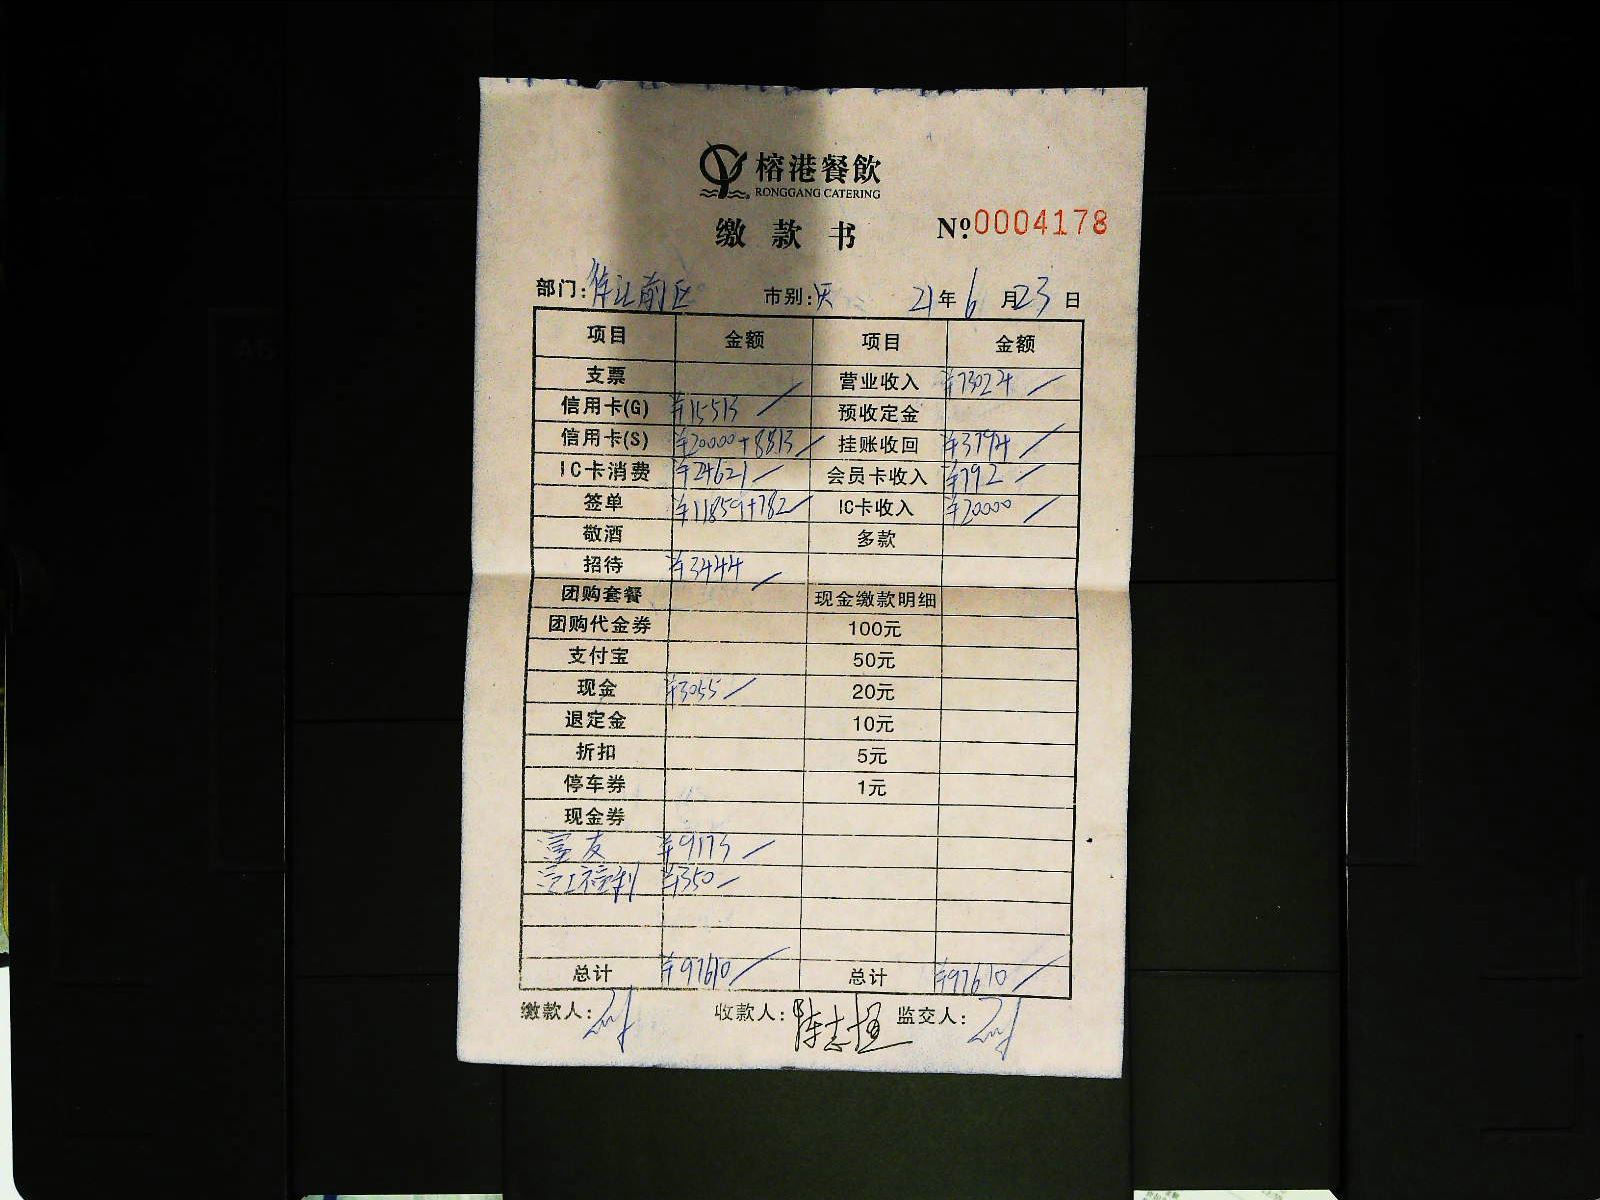 榕港餐飲
RONGGANG CATERING
缴款书 Nº:0004178
部门: 前区 市别: 21年6月23日
项目 金额 项目 金额
支票 营业收入 ¥73024
信用卡(G) ¥15513 预收定金
信用卡(S) ¥20000+8813 挂账收回 ¥3794
IC卡消费 ¥24621 会员卡收入 ¥792
签单 ¥11859+782 IC卡收入 ¥20000
敬酒 多款
招待 ¥3444
团购套餐 现金缴款明细
团购代金券 100元
支付宝 50元
现金 ¥3055 20元
退定金 10元
折扣 5元
停车券 1元
现金券
富友 ¥9173
员工福利 ¥350
总计 ¥97610 总计 ¥97610
缴款人: 收款人:陈志恒 监交人: